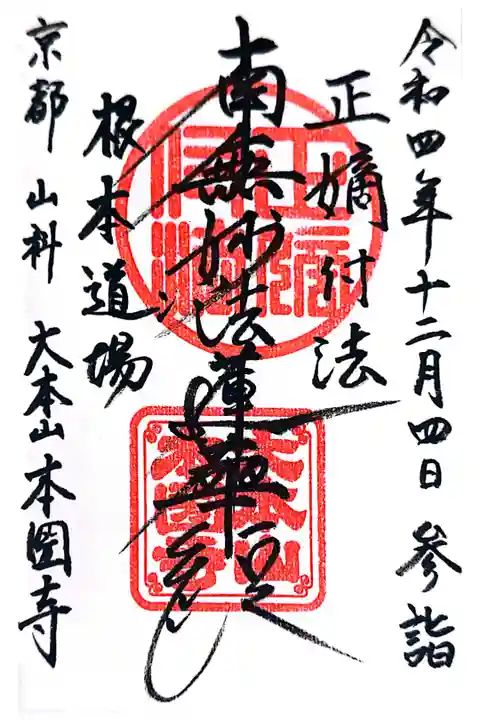 令和四年十二月四日 参詣
正嫡付法
南無妙法蓮華経
根本道場
京都 山科 大本山本圀寺
大本山
本圀寺